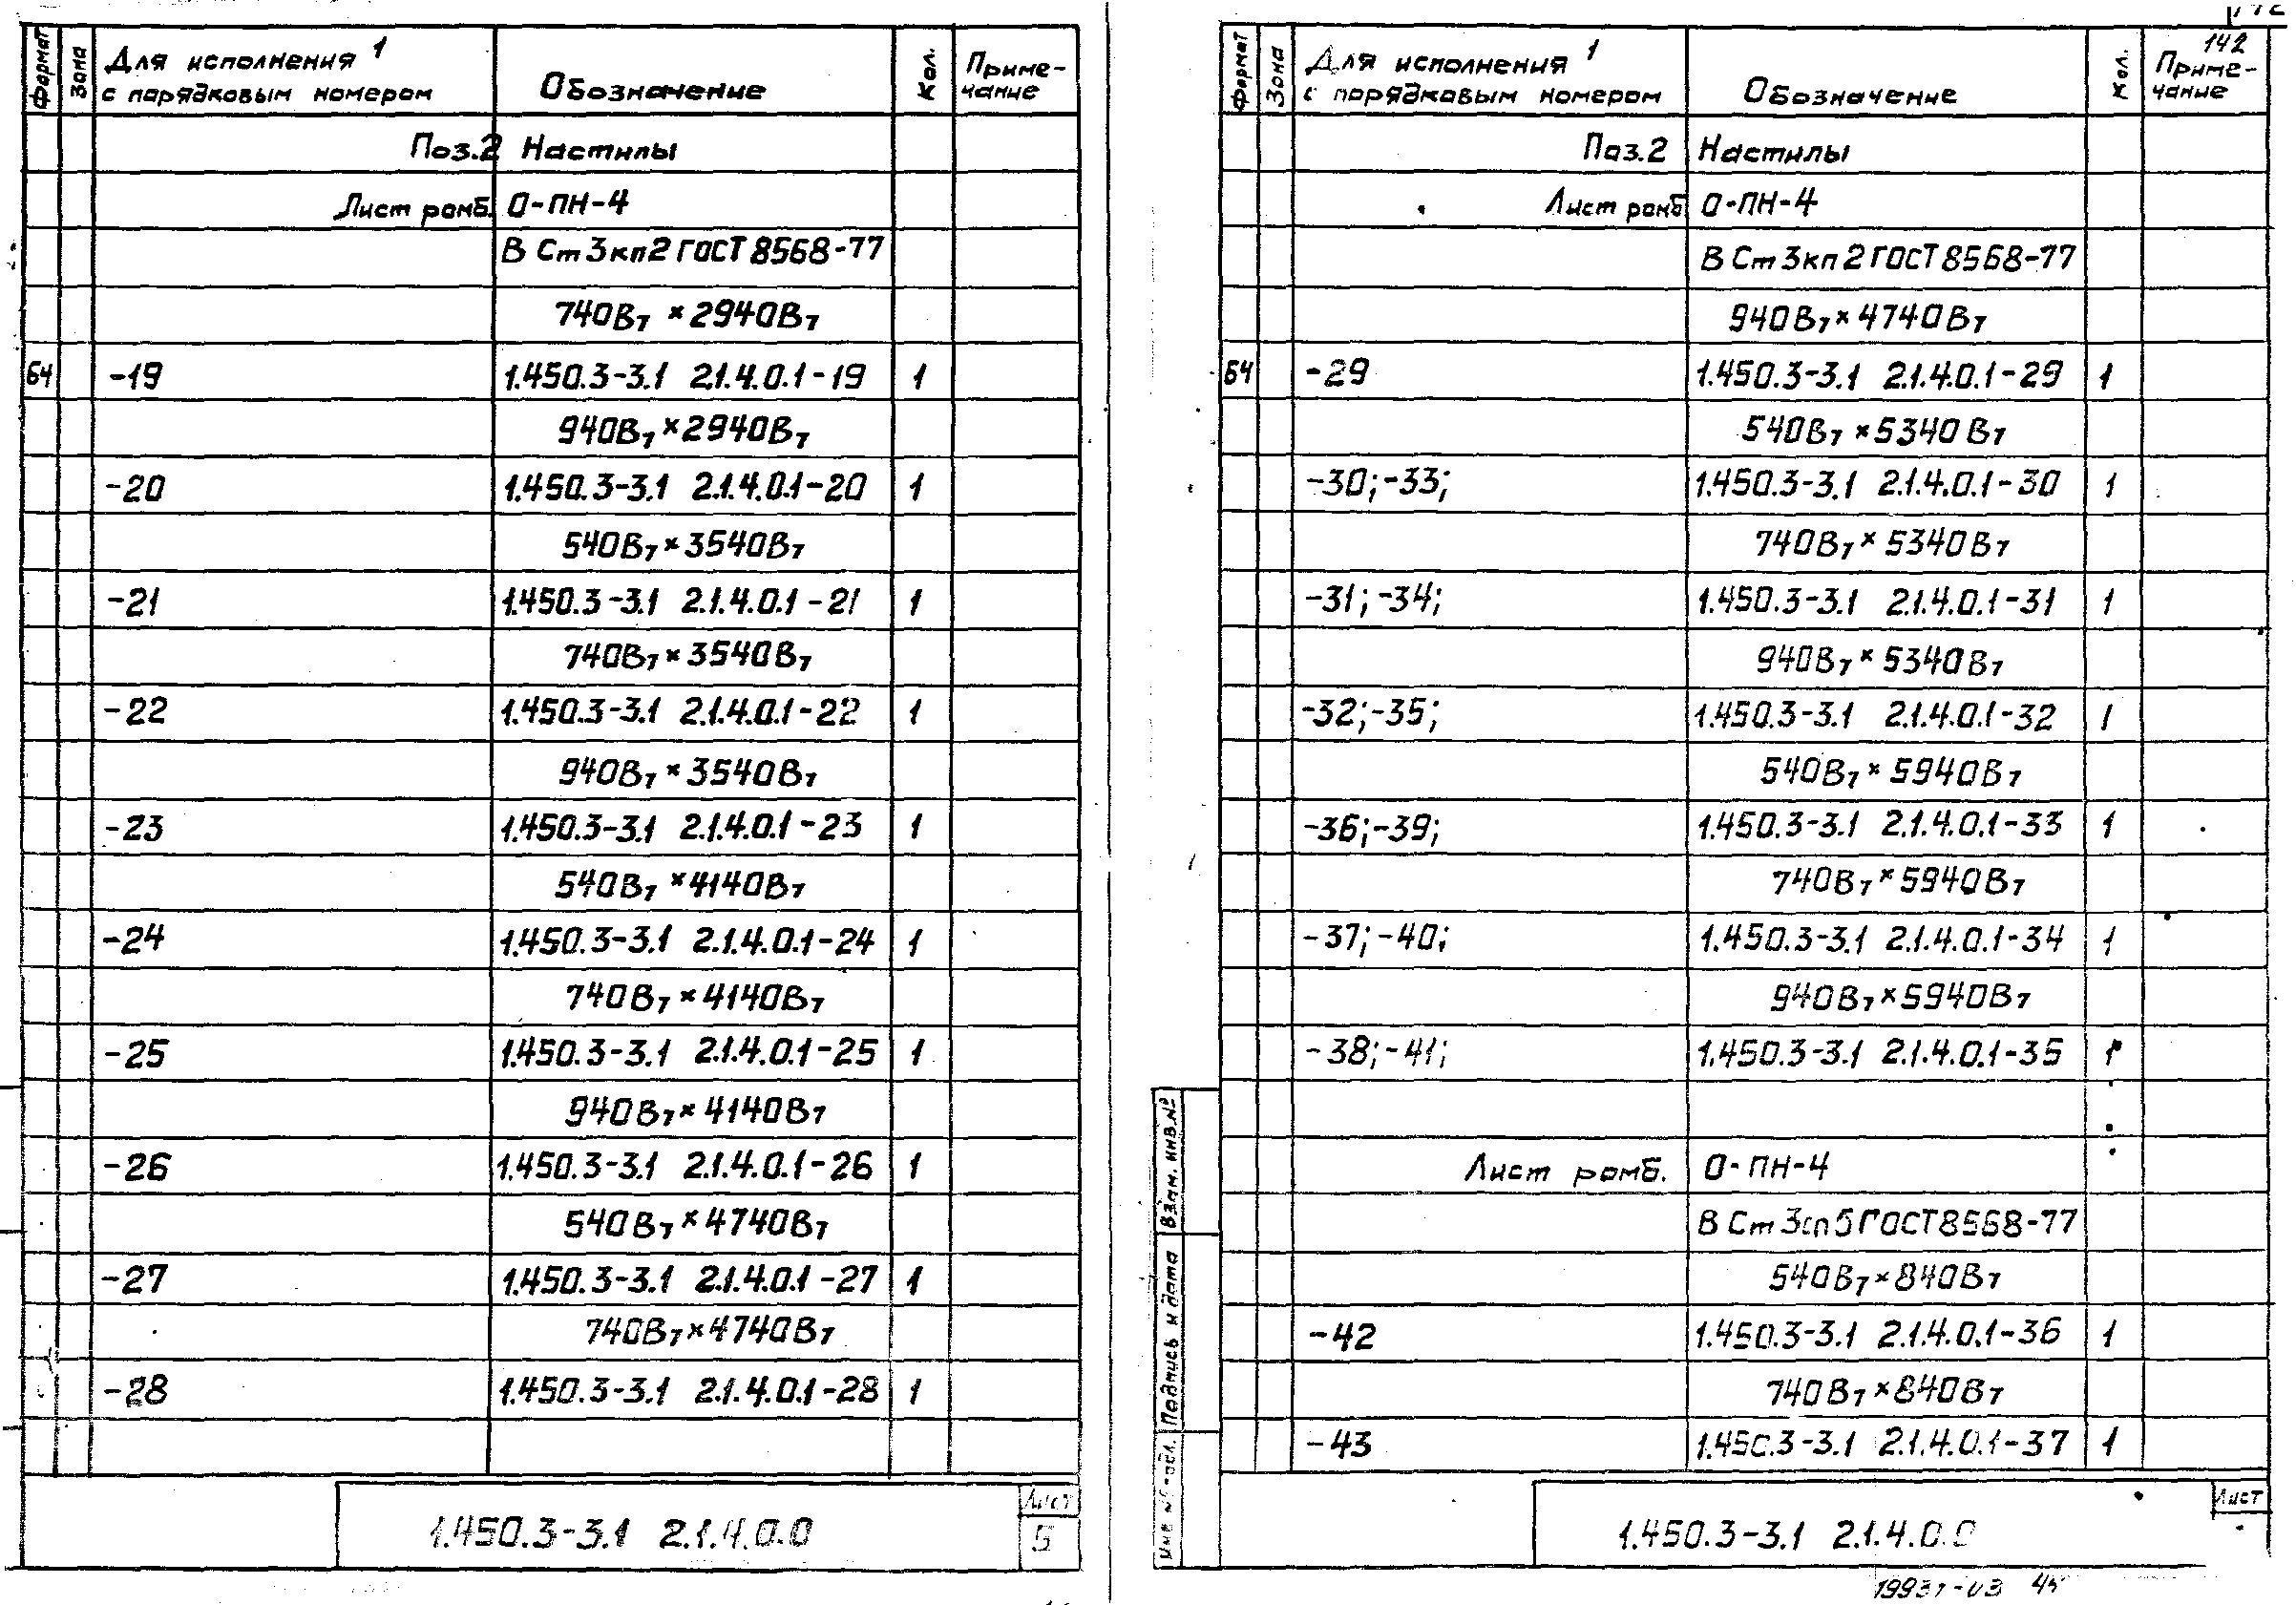 Формат Зона Для исполнения 1 с порядковым номером Обозначение Кол. Приме-чание
Поз.2 Настилы
Лист ромб. О-ПН-4
В Ст 3кп2 ГОСТ 8568-77
740В7 × 2940В7
БЧ -19 1.450.3-3.1 2.1.4.0.1-19 1
940В7 × 2940В7
-20 1.450.3-3.1 2.1.4.0.1-20 1
540В7 × 3540В7
-21 1.450.3-3.1 2.1.4.0.1-21 1
740В7 × 3540В7
-22 1.450.3-3.1 2.1.4.0.1-22 1
940В7 × 3540В7
-23 1.450.3-3.1 2.1.4.0.1-23 1
540В7 × 4140В7
-24 1.450.3-3.1 2.1.4.0.1-24 1
740В7 × 4140В7
-25 1.450.3-3.1 2.1.4.0.1-25 1
940В7 × 4140В7
-26 1.450.3-3.1 2.1.4.0.1-26 1
540В7 × 4740В7
-27 1.450.3-3.1 2.1.4.0.1-27 1
740В7 × 4740В7
-28 1.450.3-3.1 2.1.4.0.1-28 1
1.450.3-3.1 2.1.4.0.0
Лист
5
142
Формат Зона Для исполнения 1 с порядковым номером Обозначение Кол. Приме-чание
Поз.2 Настилы
Лист ромб О-ПН-4
В Ст 3кп2 ГОСТ 8568-77
940В7 × 4740В7
БЧ -29 1.450.3-3.1 2.1.4.0.1-29 1
540В7 × 5340В7
-30; -33; 1.450.3-3.1 2.1.4.0.1-30 1
740В7 × 5340В7
-31; -34; 1.450.3-3.1 2.1.4.0.1-31 1
940В7 × 5340В7
-32; -35; 1.450.3-3.1 2.1.4.0.1-32 1
540В7 × 5940В7
-36; -39; 1.450.3-3.1 2.1.4.0.1-33 1
740В7 × 5940В7
-37; -40; 1.450.3-3.1 2.1.4.0.1-34 1
940В7 × 5940В7
-38; -41; 1.450.3-3.1 2.1.4.0.1-35 1
Лист ромб. О-ПН-4
В Ст 3сп5 ГОСТ 8568-77
540В7 × 840В7
-42 1.450.3-3.1 2.1.4.0.1-36 1
740В7 × 840В7
-43 1.450.3-3.1 2.1.4.0.1-37 1
Взам. инв.№
Подпись и дата
Инв №
1.450.3-3.1 2.1.4.0.0
Лист